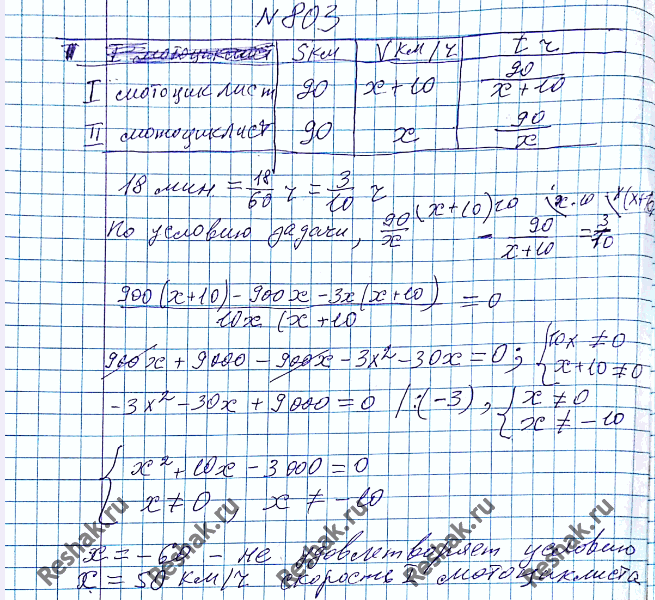 N 803
S км V км/ч t ч
I мотоциклист 90 x+10 90/(x+10)
II мотоциклист 90 x 90/x
18 мин = 18/60 ч = 3/10 ч
По условию задачи, 90/x (x+10)10 - 90/(x+10) x·10 = 3/10
(900(x+10) - 900x - 3x(x+10))/(10x(x+10) = 0
900x + 9000 - 900x - 3x² - 30x = 0; { 10x ≠ 0 x+10 ≠ 0
-3x² - 30x + 9000 = 0 /:(-3), { x ≠ 0 x ≠ -10
{ x² + 10x - 3000 = 0
x ≠ 0, x ≠ -10
x = -60 - не удовлетворяет условию
x = 50 км/ч скорость II мотоциклиста
Reshak.ru Reshak.ru Reshak.ru Reshak.ru